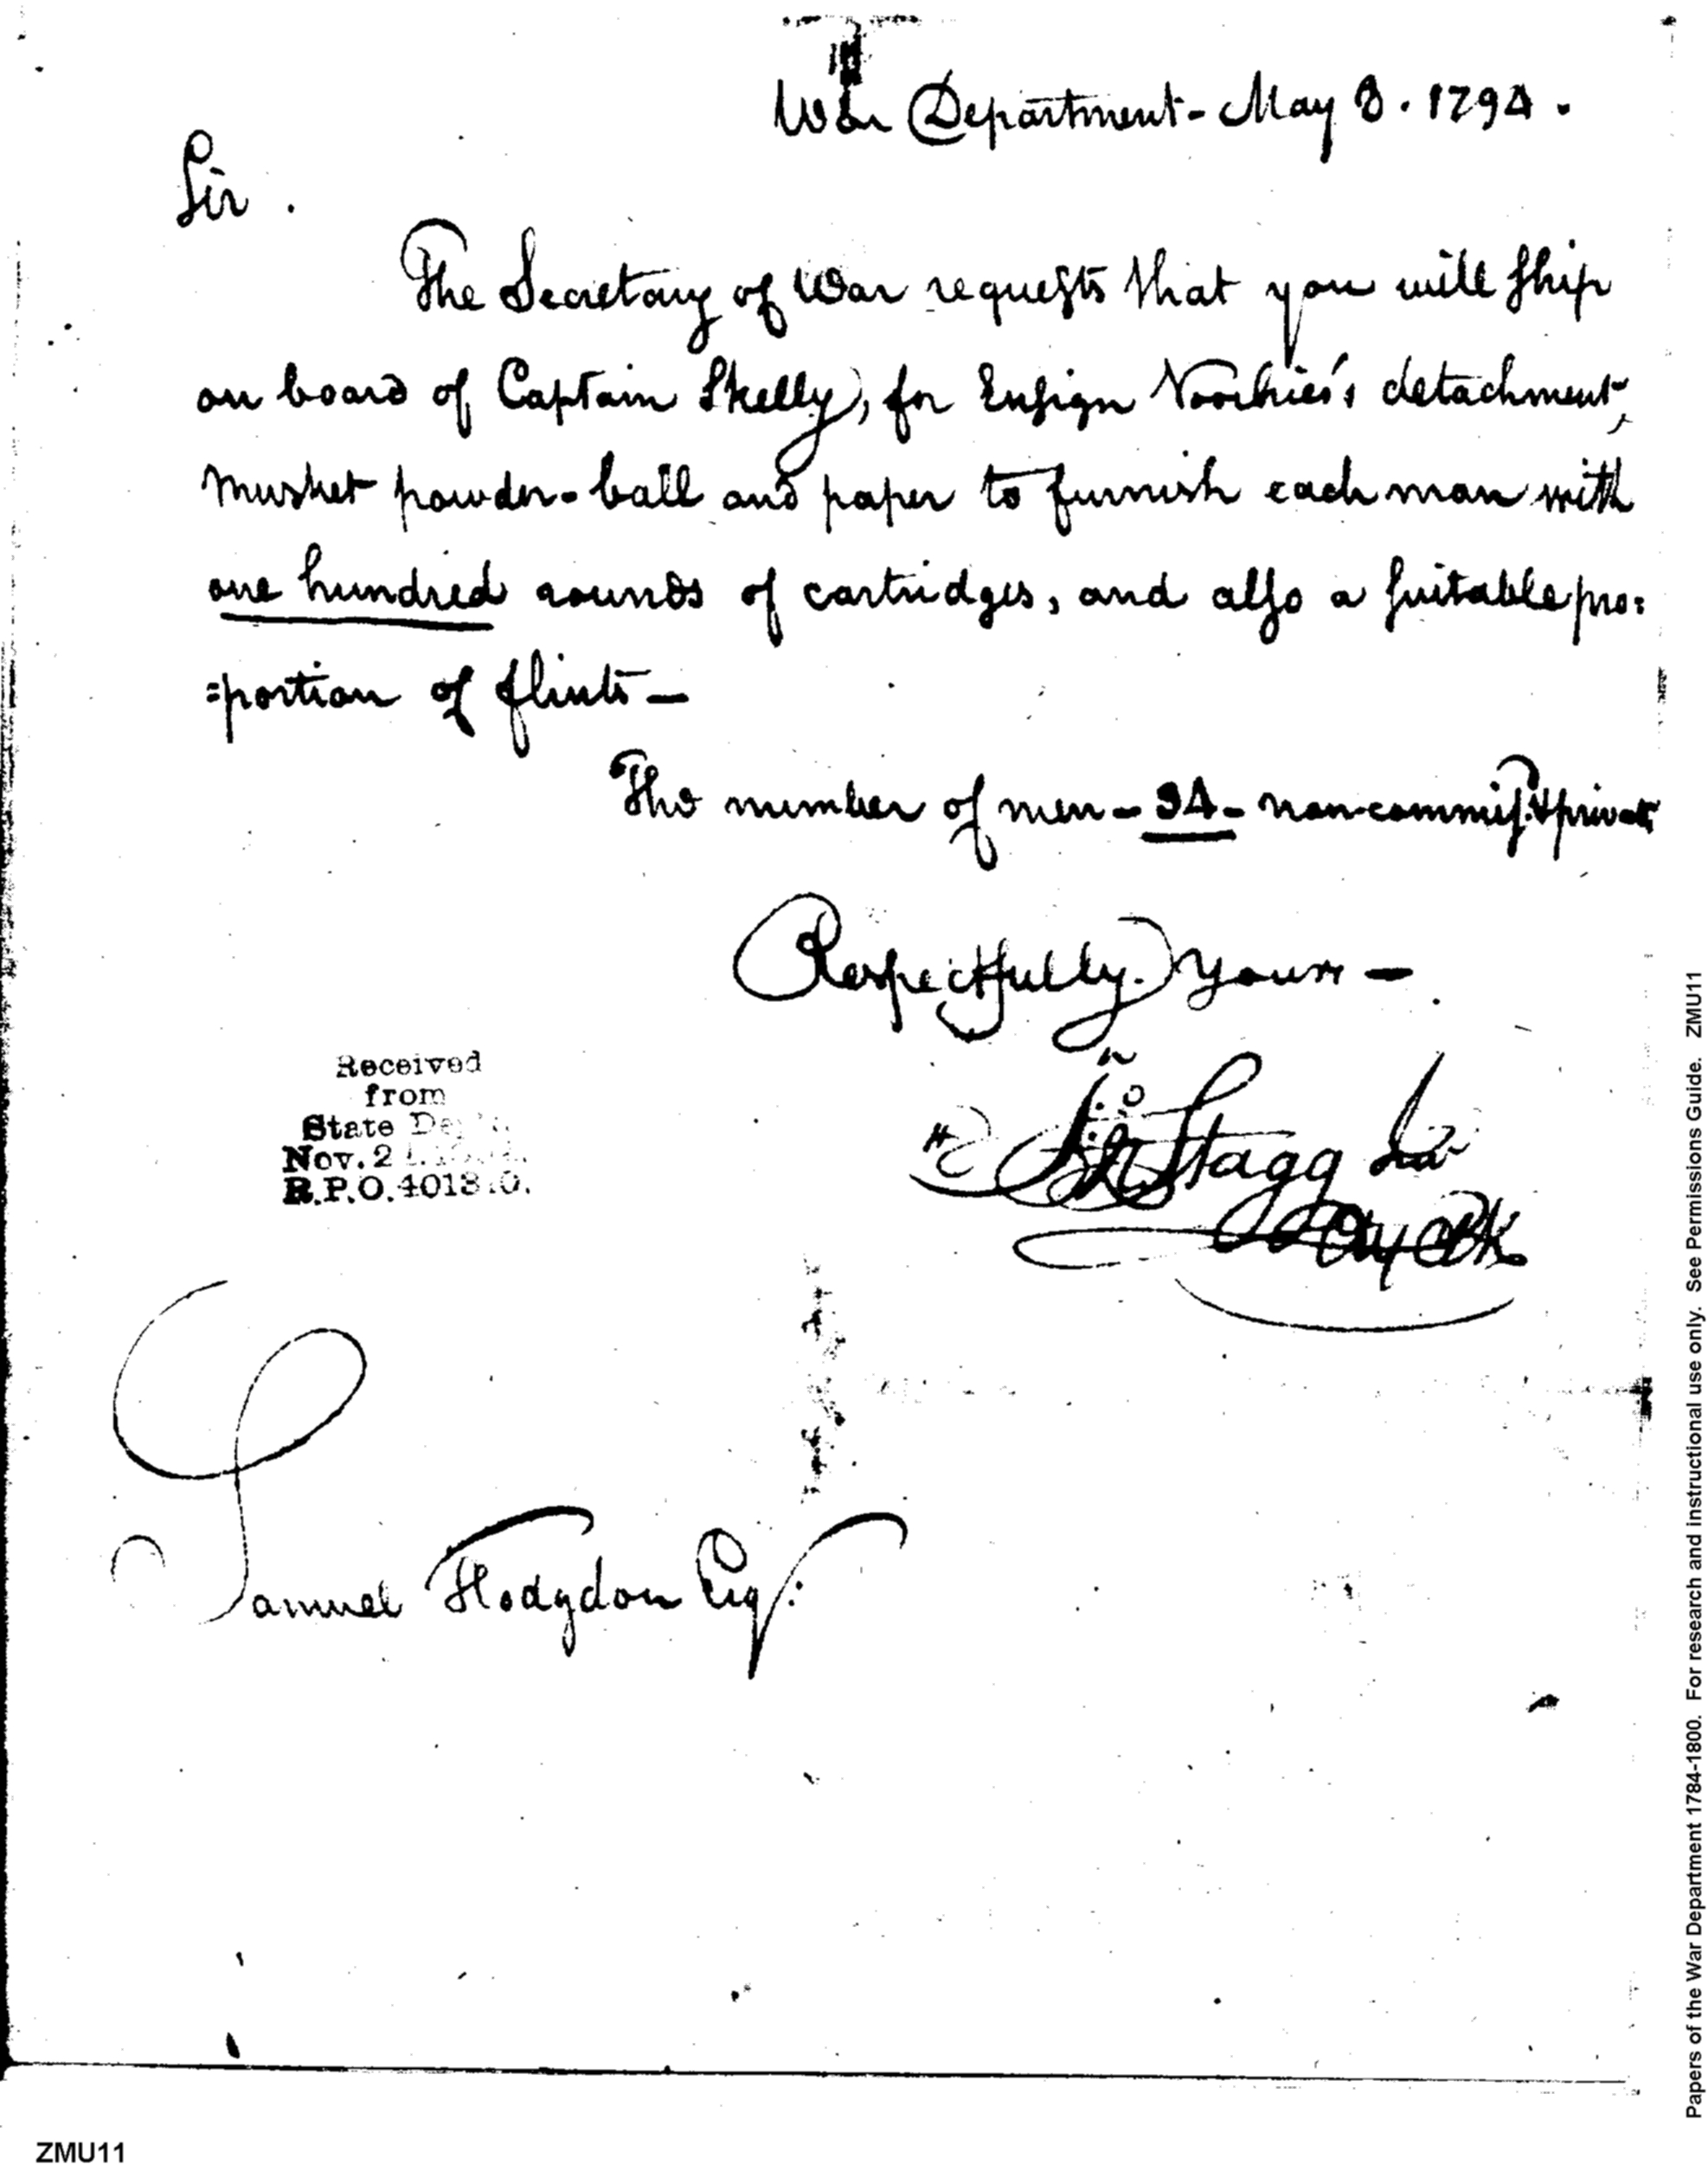 War Department - May 3. 1794.
Sir.
The Secretary of War requests that you will ship
on board of Captain Skelly, for Ensign Voorhies's detachment,
musket powder - ball and paper to furnish each man with
one hundred rounds of cartridges, and also a suitable pro=
=portion of flints —
The number of men - 34 - non-commis.d & privates
Respectfully yours —
Jno Stagg Jur
Samuel Hodgdon Esq:
Received
from
State
Nov. 2
R.P.O.
ZMU11
Papers of the War Department 1784-1800. For research and instructional use only. See Permissions Guide. ZMU11